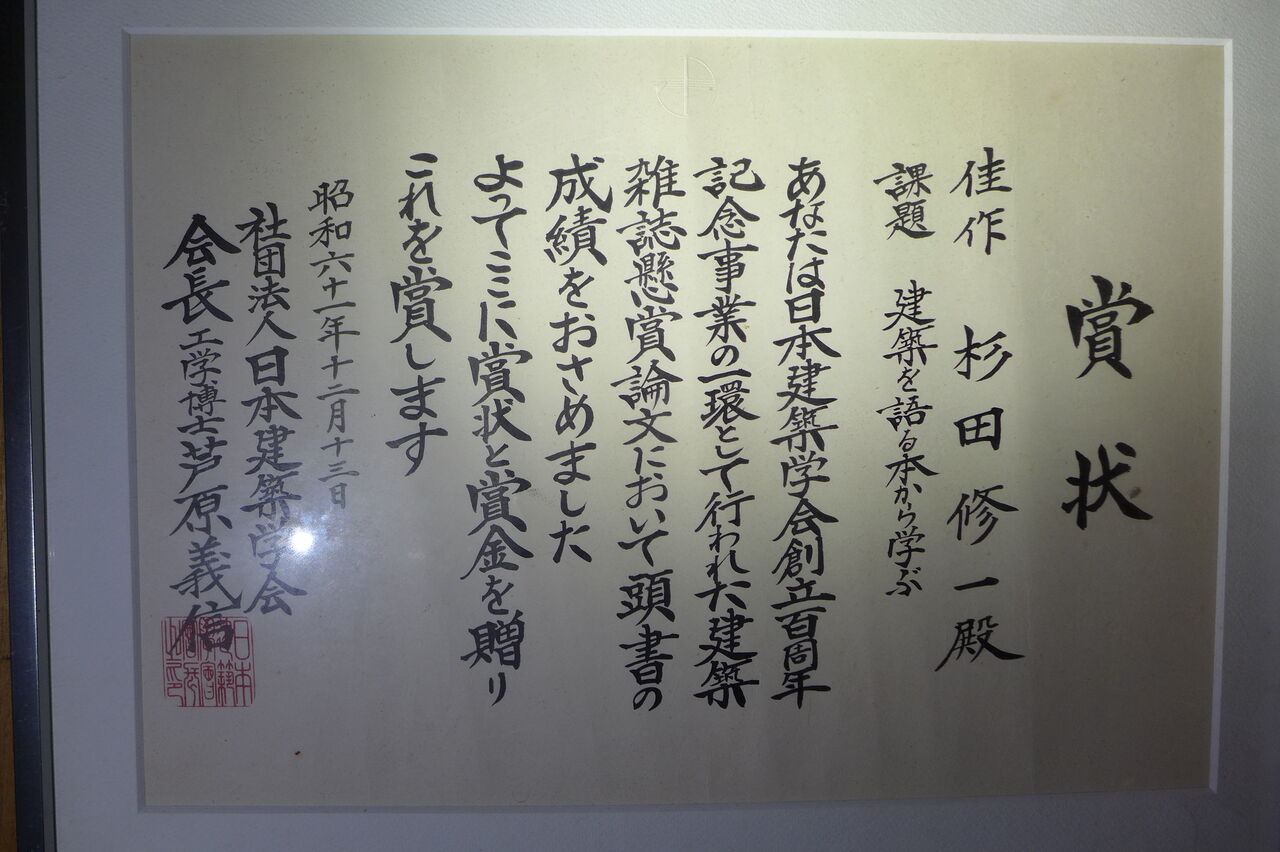 賞状
佳作 杉田修一殿
課題 建築を語る本から学ぶ
あなたは日本建築学会創立百周年
記念事業の一環として行われた建築
雑誌懸賞論文において頭書の
成績をおさめました
よってここに賞状と賞金を贈り
これを賞します
昭和六十一年十二月十三日
社団法人日本建築学会
会長 工学博士 芦原義信